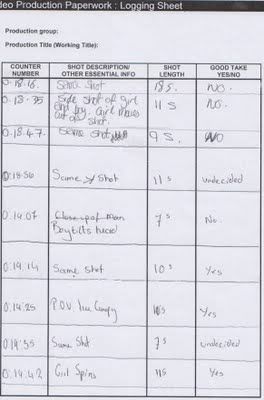 deo Production Paperwork : Logging Sheet
Production group:
Production Title (Working Title):
COUNTER NUMBER SHOT DESCRIPTION/ OTHER ESSENTIAL INFO SHOT LENGTH GOOD TAKE YES/NO
0.18.16. Same Shot 18s. NO.
0.18.35 Side shot of girl
and boy. Girl moves 11s No.
out of shot.
0.18.47. Same shot 9s. NO
0:18:56 Same Shot 11s undecided
0:19:07 Close up of Man 7s No.
Boy tilts head
0:19:14 Same Shot 10s Yes
0:19:25 P.O.V 10s Yes
0:19:35 Same Shot 7s undecided
0:19:42 Girl Spins 11s Yes